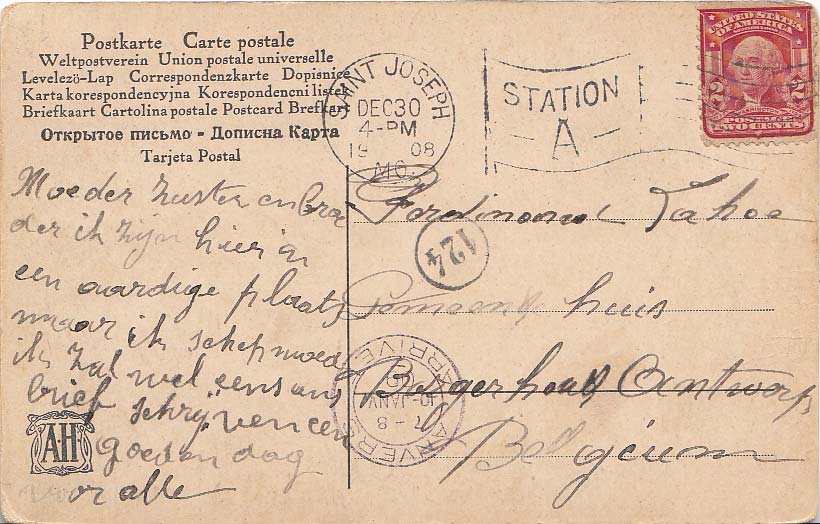 Postkarte Carte postale
Weltpostverein Union postale universelle
Levelezö-Lap Correspondenzkarte Dopisnice
Karta korespondencyjna Korespondencni listek
Briefkaart Cartolina postale Postcard Brefkort
Открытое письмо - Дописна Карта
Tarjeta Postal
SAINT JOSEPH
DEC 30
4-PM
19 08
MO.
STATION
A
UNITED STATES
OF AMERICA
2 2
POSTAGE
TWO CENTS
Moeder zuster en broe
der ik zijn hier in
een aardige plaats
maar ik schep moed
ik zal wel eens ans
brief schrijven een
goeden dag
voor alle
AH
Ferdinand
124
huis
Borgerhout Antwerp
Belgium
ANVERS
ARRIVÉE
7-8
10 JANV
09